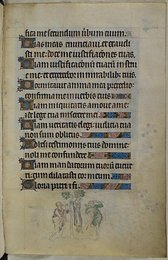 fica me secundum ubum tuum.
Uias meas enunciaui et exaudi
sti me doce me iustificationes tuas.
Uiam iustificationū tuarū instru
e me et exercebor in mirabilibꝫ tuis.
Dormitauit anima mea pre
confirma me in uerbis tuis.
Uiam iniquitatis amoue a me
et de lege tua miserere mei.
Uiam ueritatis elegi iudicia tua
non sum oblitus.
Adhesi testimoniis tuis domine
noli me confundere.
Uiam mandatorum tuorū cucur
ri cum dilatasti cor meum.
Gloria patri.